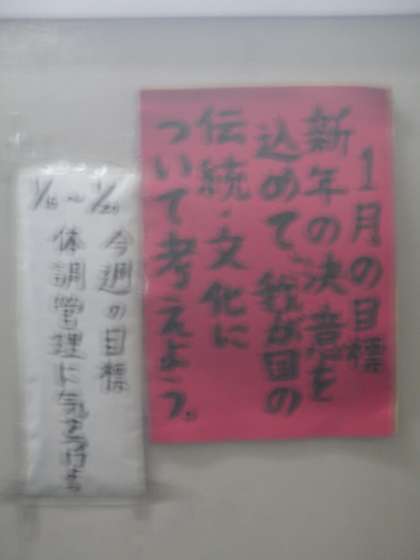 1月の目標
新年の決意を
込めて、我が国の
伝統・文化に
ついて考えよう。
1/16〜1/20
今週の目標
体調管理に気を付ける